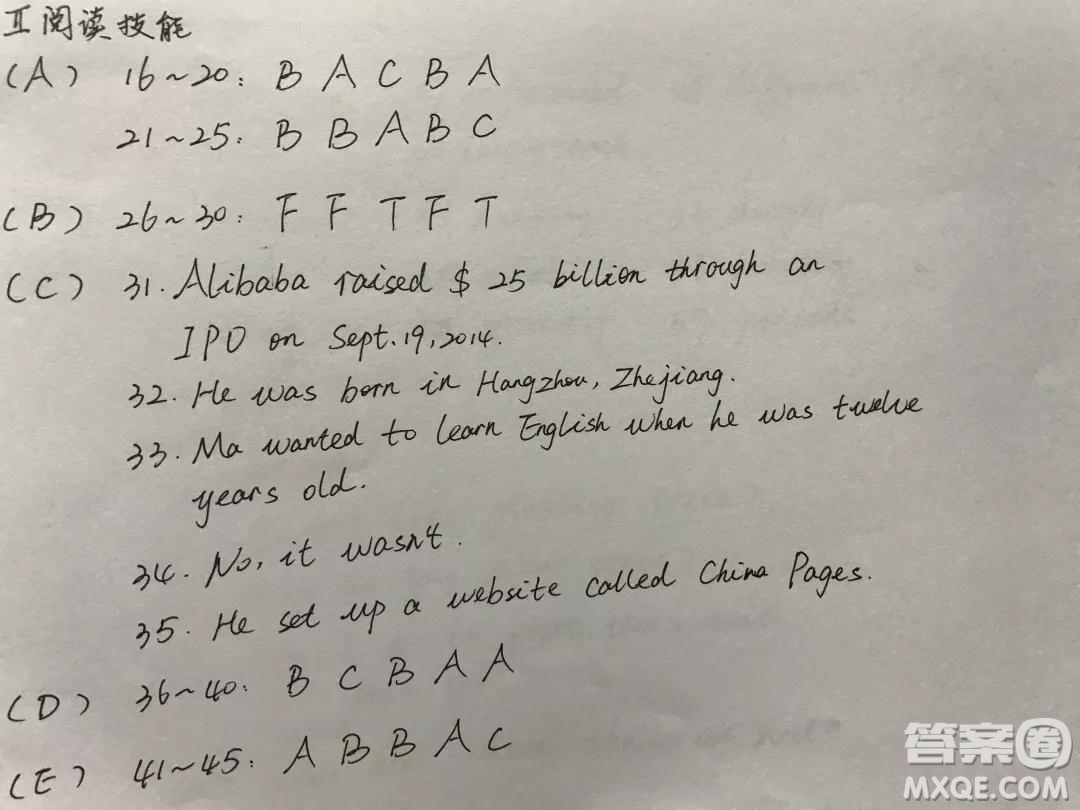 II 阅读技能
(A) 16~20: B A C B A
21~25: B B A B C
(B) 26~30: F F T F T
(C) 31. Alibaba raised $ 25 billion through an
IPO on Sept. 19, 2014.
32. He was born in Hangzhou, Zhejiang.
33. Ma wanted to learn English when he was twelve
years old.
34. No, it wasn't.
35. He set up a website called China Pages.
(D) 36~40: B C B A A
(E) 41~45: A B B A C
答案圈
MXQE.COM